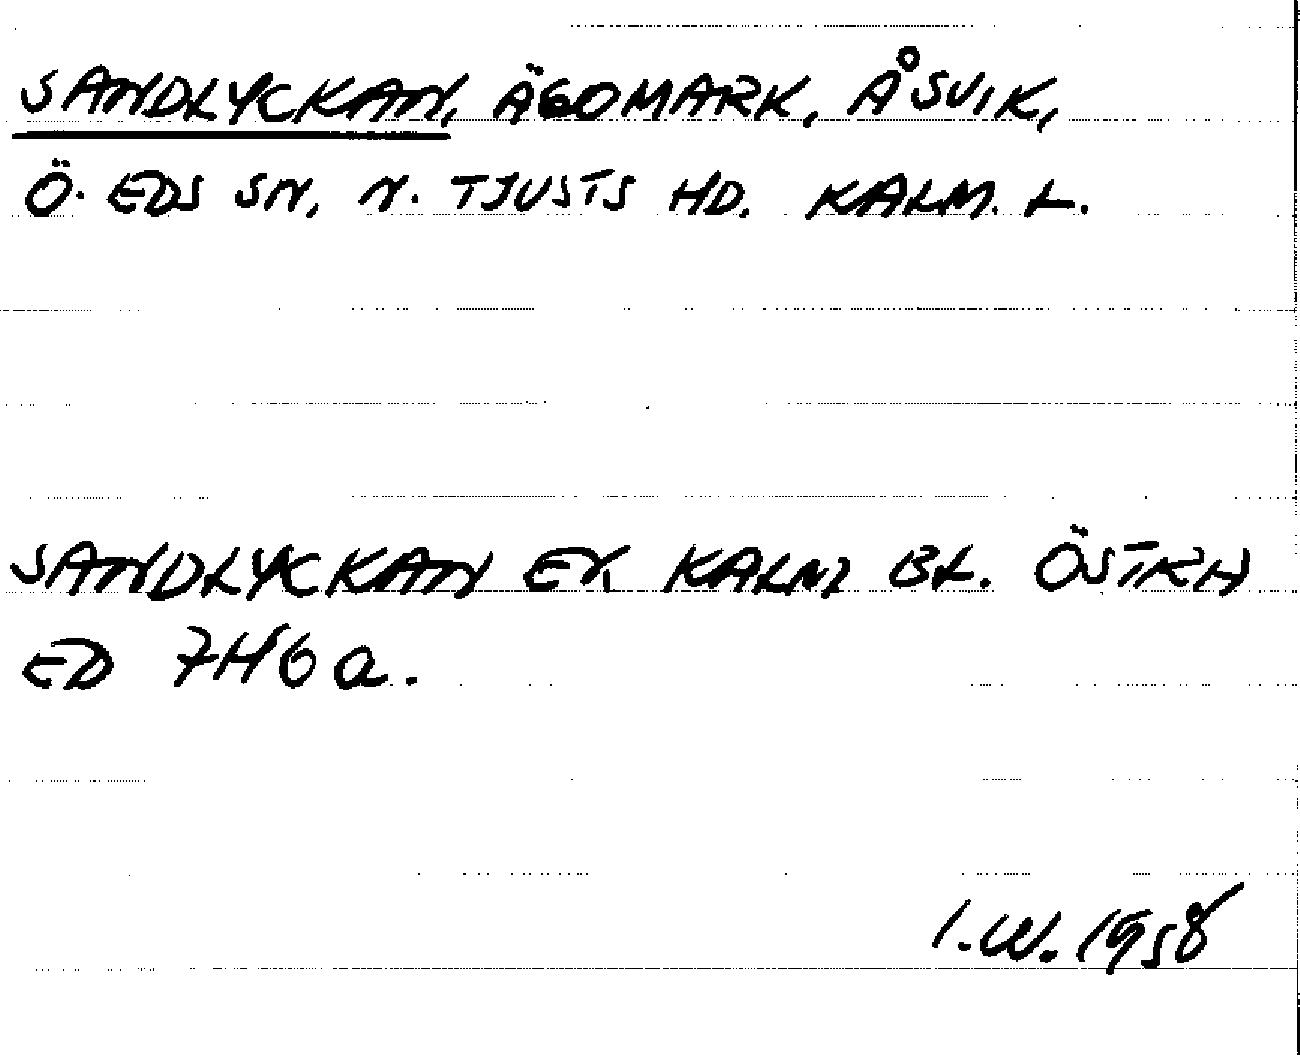 SANDLYCKAN, ÄGOMARK, ÅSVIK,
Ö. EDS SN, N. TJUSTS HD. KALM. L.
SANDLYCKAN EK. KALM BL. ÖSTRA
ED 7H6a.
I.W. 1958